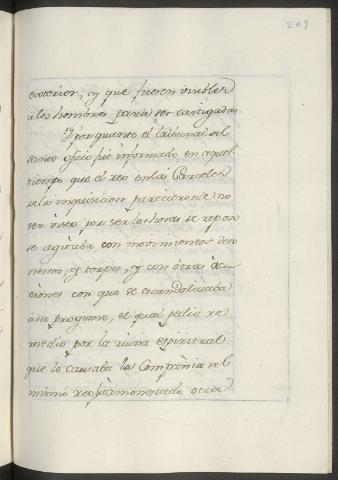 209
exterior, y que fuesen invibles
a los hombres para ser castigadas.
Y por quanto el tribunal del
santo oficio fue informado en aquel
tiempo que el reo en las Carceles
de la inquisicion pareciendole no
ser visto por ser las horas de reposo
se agitaba con movimientos desho
nestos, y torpes, y con otras ac-
ciones con que se escandalizaba
a su progimo, el qual pedia re
medio por la ruina espiritual
que le causaba la Compañia del
mismo reo amonestado otra